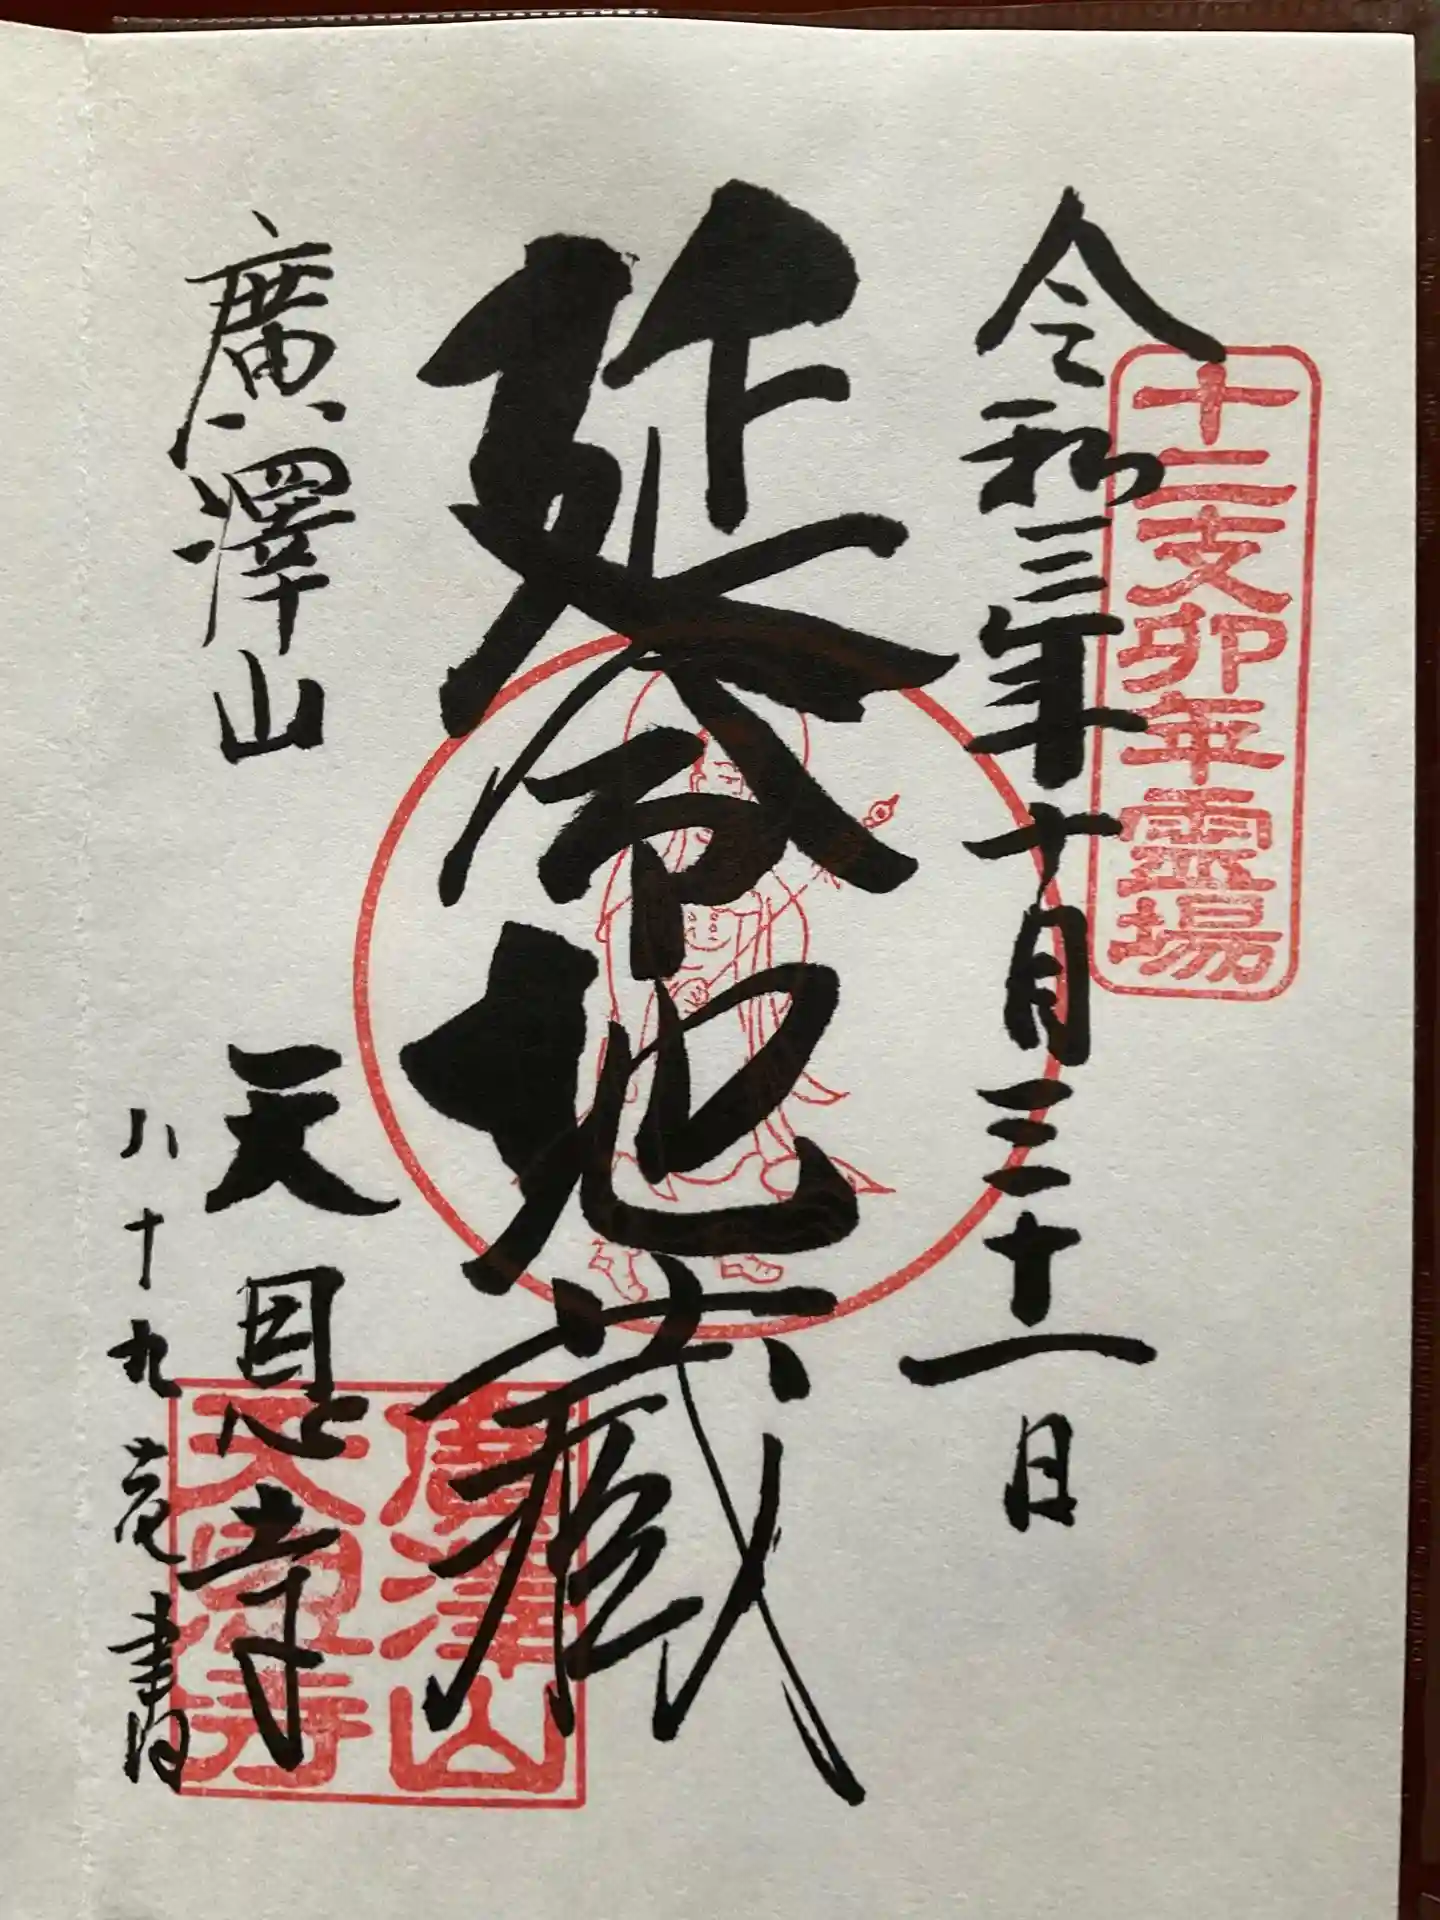 十二支卯年霊場
令和三年十月三十一日
延命地蔵
廣澤山 天恩寺
八十九老書
廣澤山
天恩寺